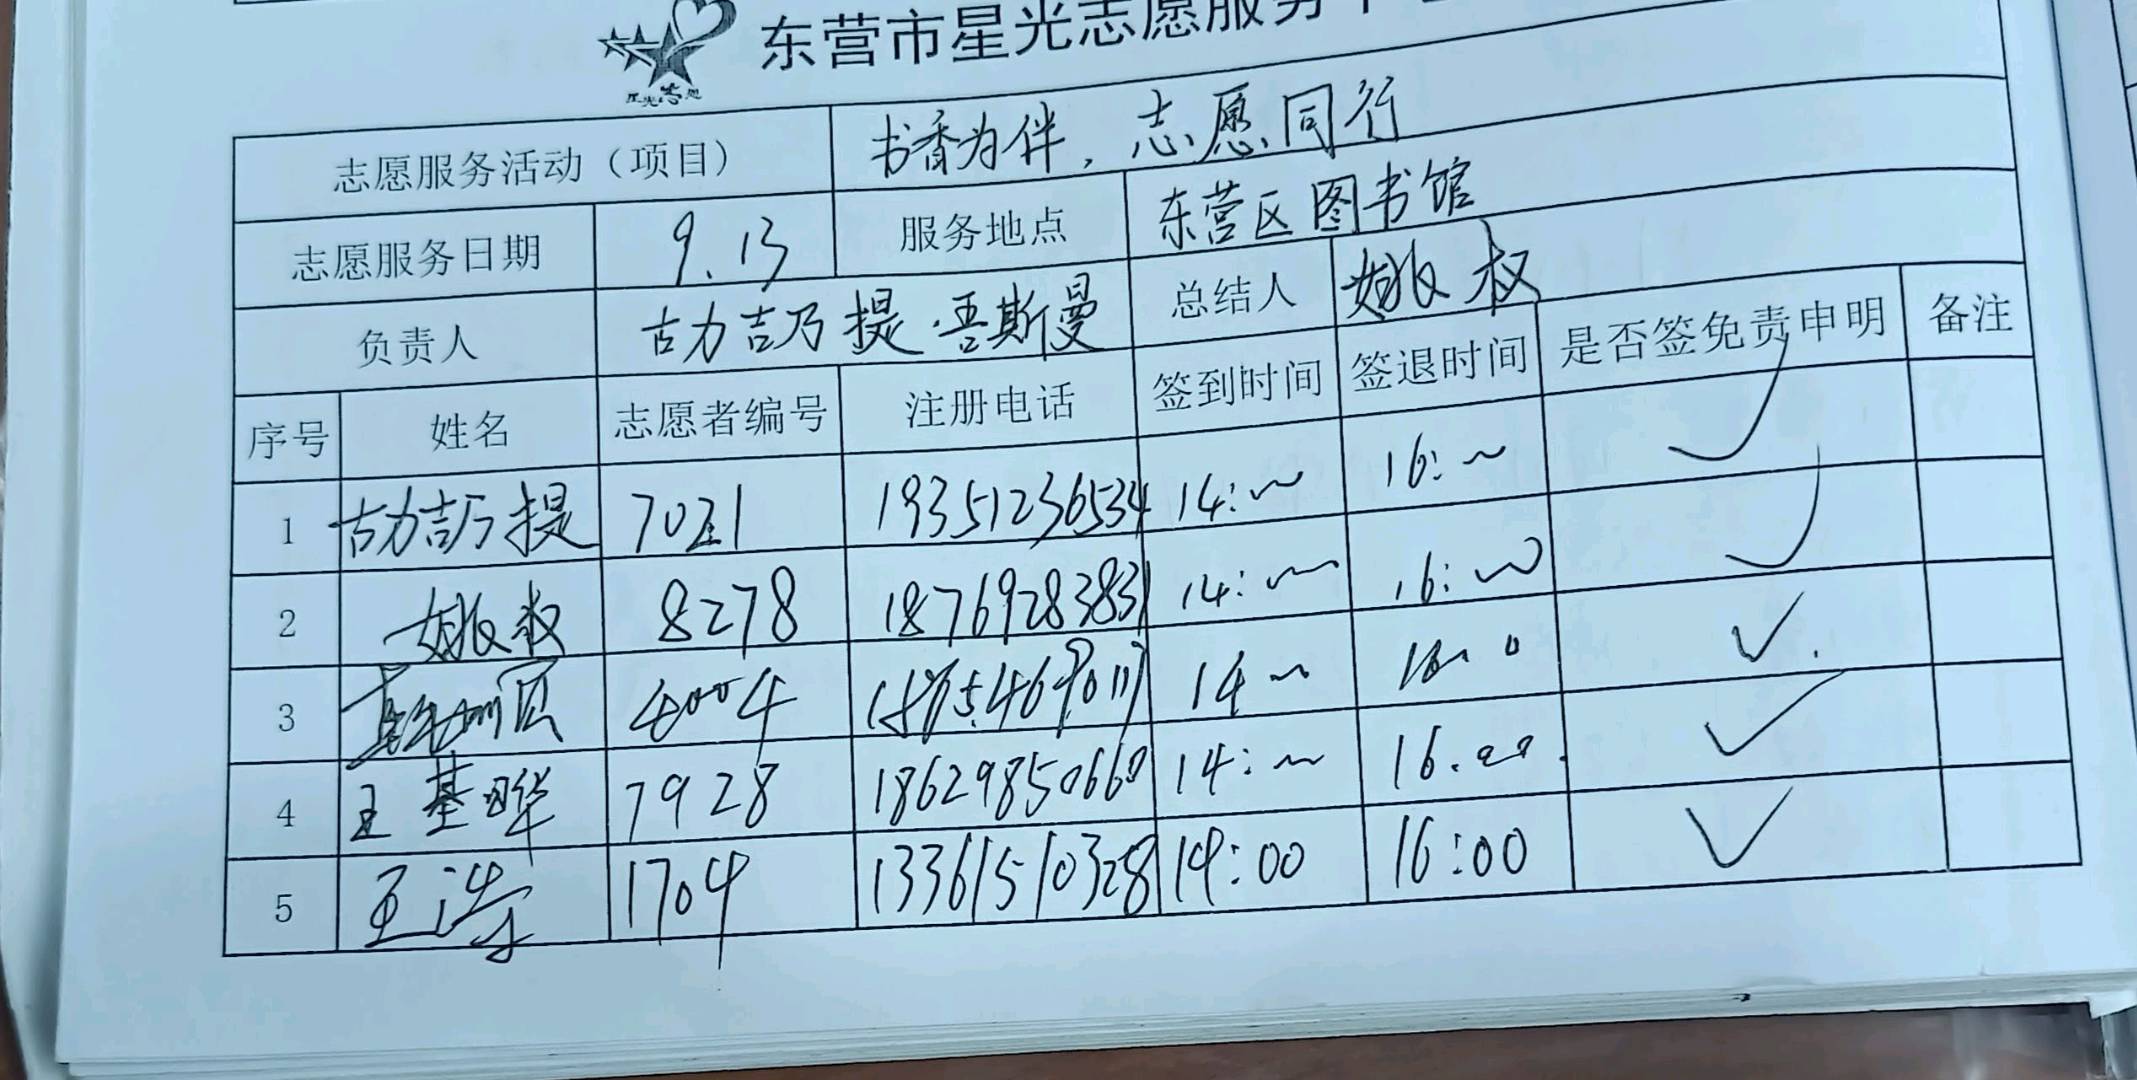 东营市星光志愿服务中心
星光志愿
志愿服务活动（项目） 书香为伴，志愿同行
志愿服务日期 9.13 服务地点 东营区图书馆
负责人 古力吉乃提·吾斯曼 总结人 姚权
序号 姓名 志愿者编号 注册电话 签到时间 签退时间 是否签免责申明 备注
1 古力吉乃提 7021 19351236534 14:00 16:00 ✓
2 姚权 8278 18769283831 14:00 16:00 ✓
3 4004 14 ✓
4 王基晔 7928 18629850660 14:00 16.00 ✓
5 王涛 1704 13361510328 14:00 16:00 ✓